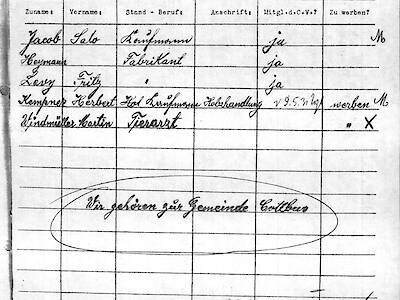 Zuname: Vorname: Stand - Beruf: Anschrift: Mitgl.d.C.V.? Zu werben?
Jacob Salo Kaufmann ja M
Heymann Fabrikant ja
Levy Fritz " ja
Kempner Herbert Kaufmann Holzhandlung werben M
Windmüller Martin Tierarzt " X
Wir gehören zur Gemeinde Cottbus